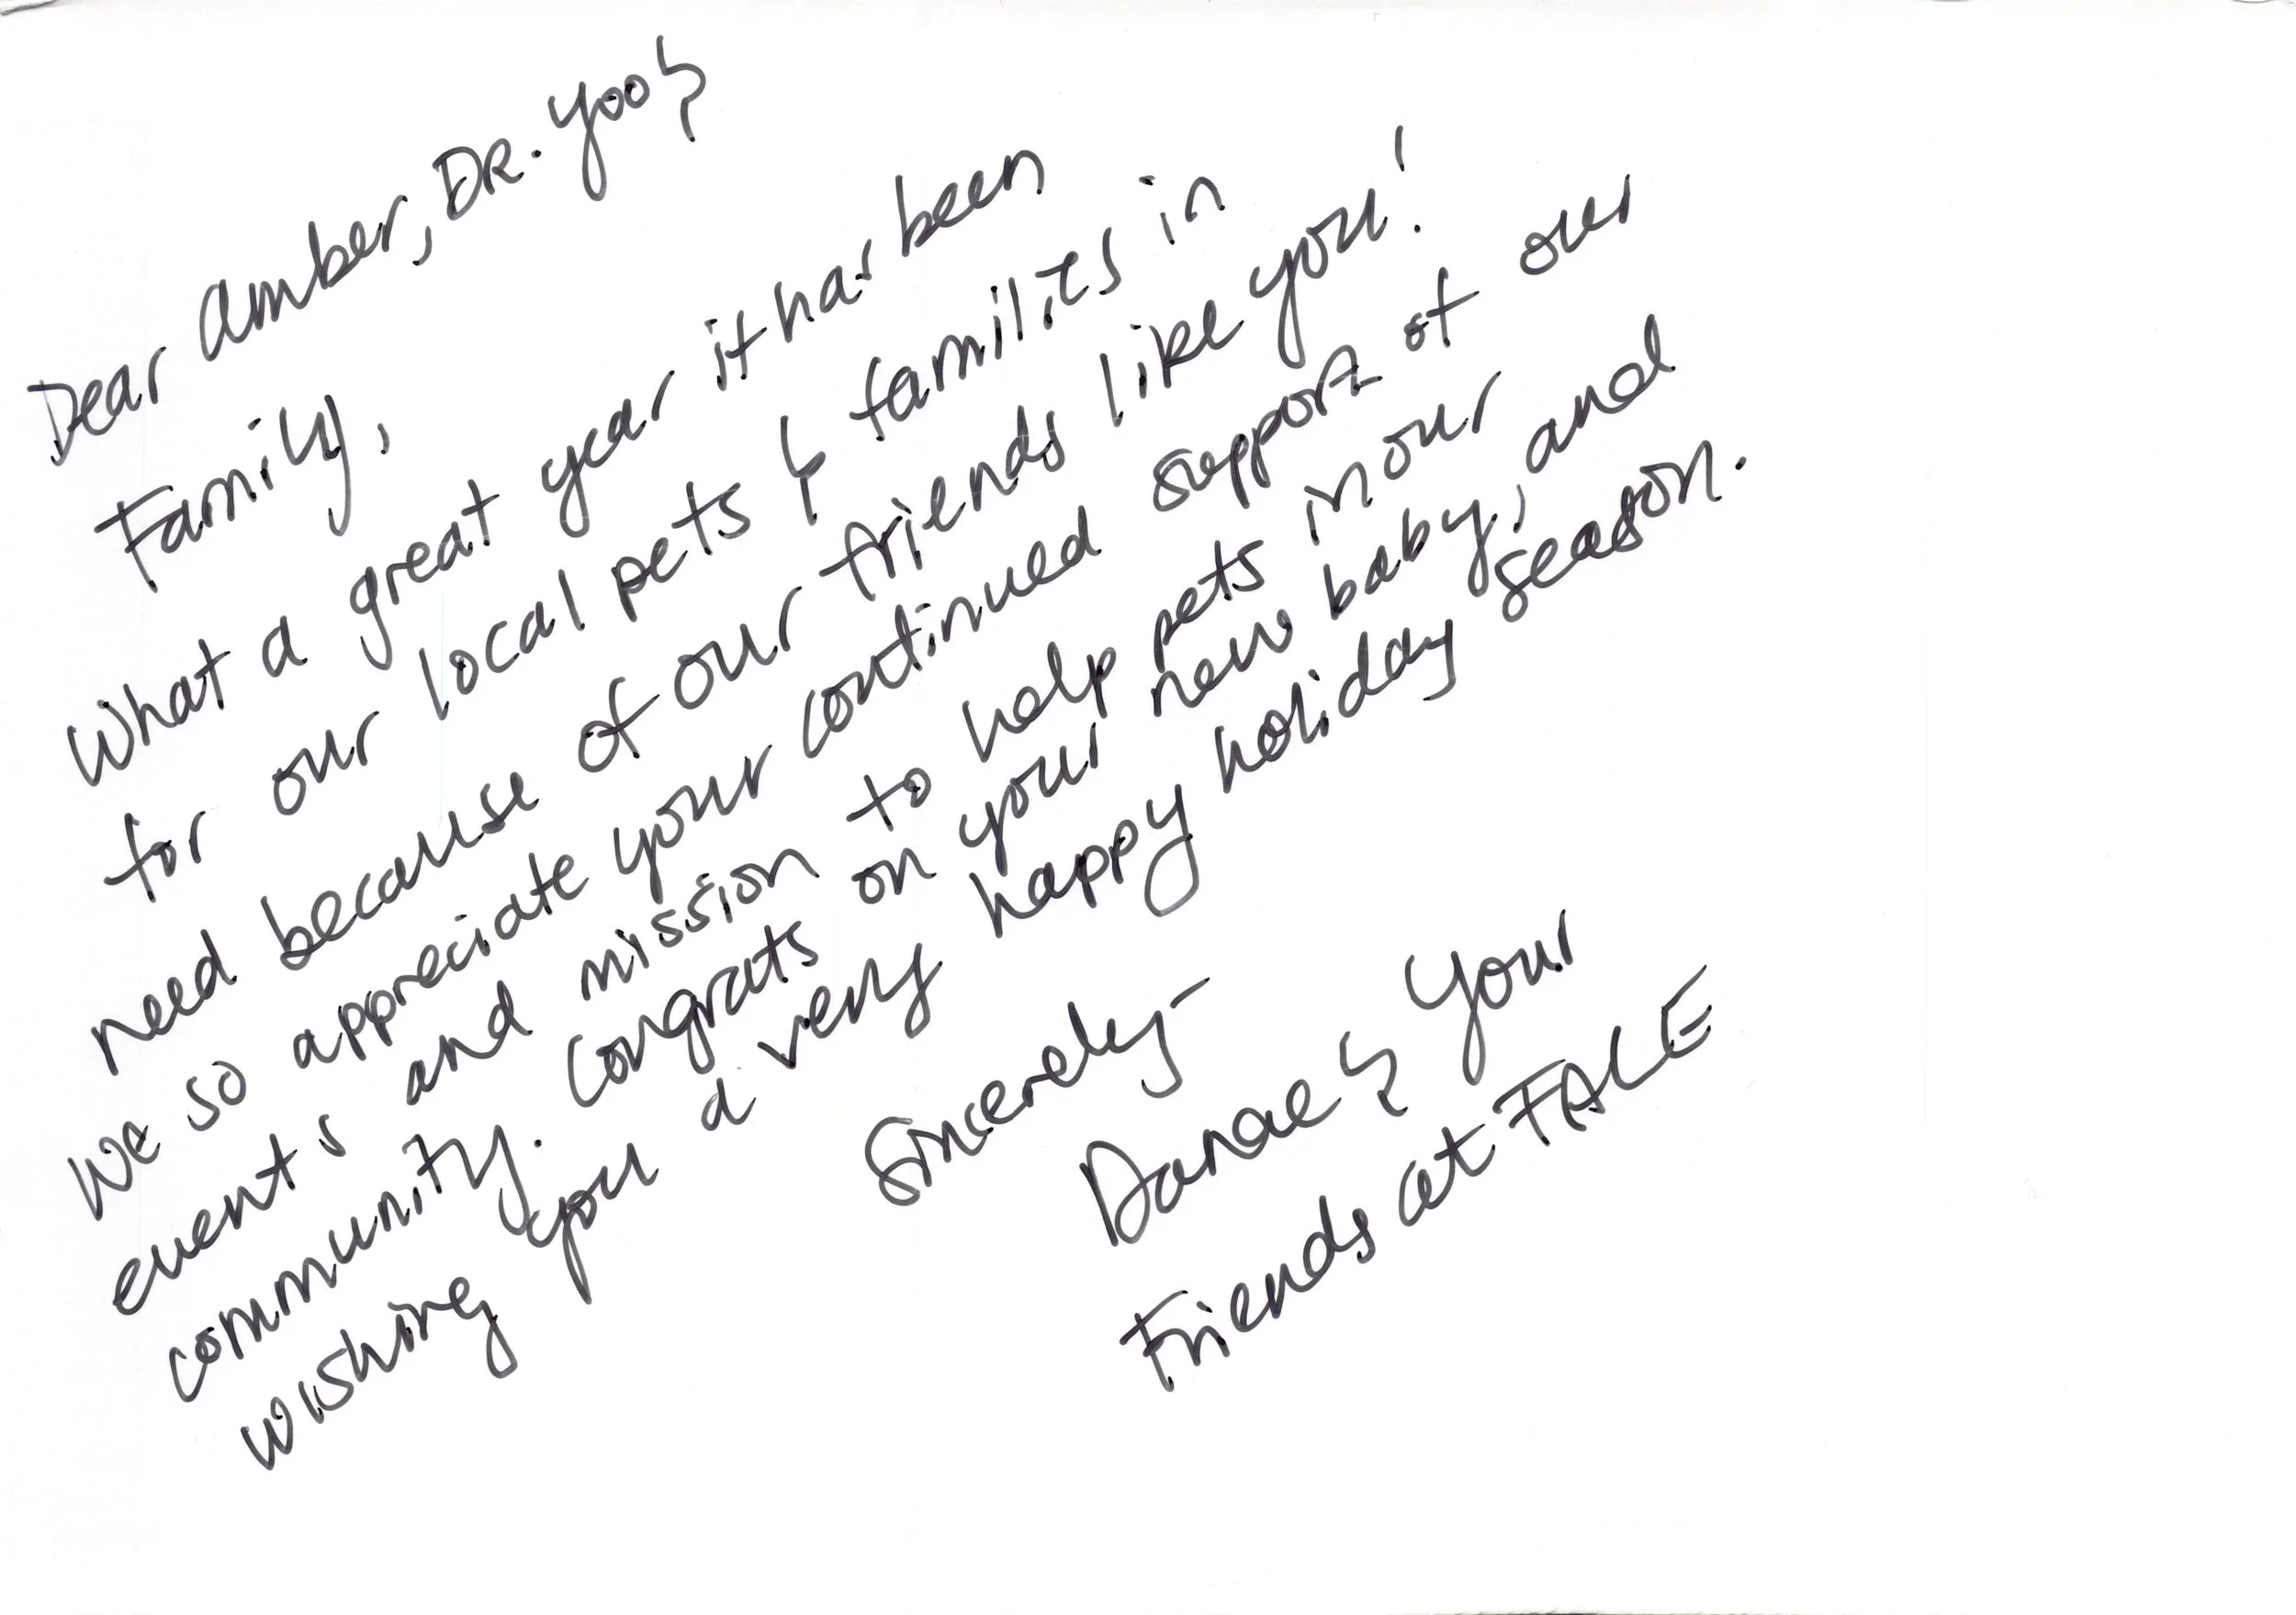 Dear Amber, DR. Yoo &
Family,
What a great year it has been
for our local pets & families in
need because of our friends like you!
We so appreciate your continued support of our
events and mission to help pets in our
community. Congrats on your new baby, and
wishing you a very happy holiday season.
Sincerely-
Danae & your
Friends at FACE